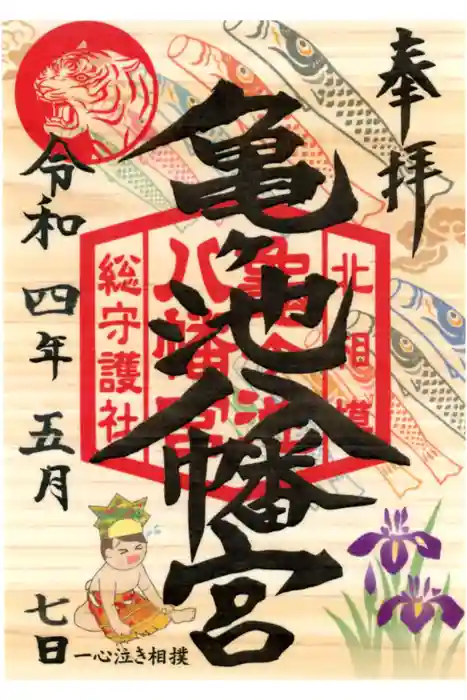 奉拝
亀ヶ池八幡宮
北相模
亀ヶ池
八幡宮
総守護社
令和四年五月七日
一心泣き相撲